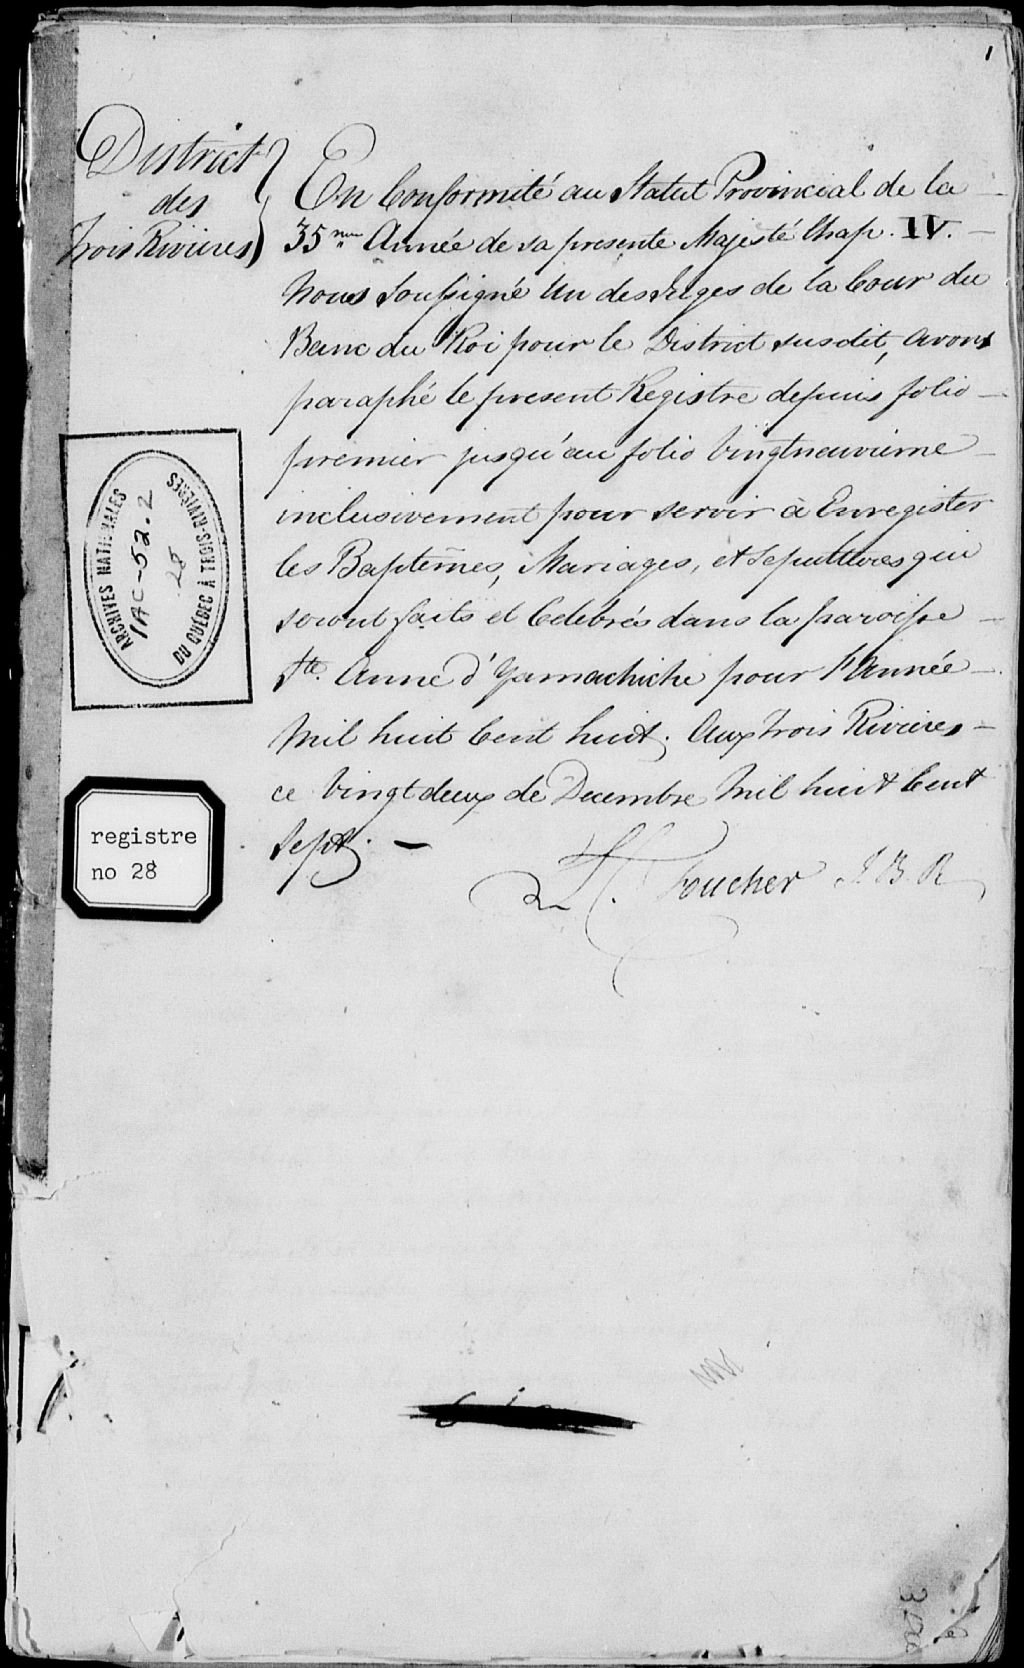 1
District
des
Trois Rivieres
En Conformité au Statut Provincial de la
35me Année de sa presente Majesté Chap. IV.
Nous Soussigné Un des Juges de la Cour du
Banc du Roi pour le District susdit, avons
paraphé le present Registre depuis folio
premier jusqu'au folio Vingtneuvieme
inclusivement pour servir à Enregister
les Baptêmes, Mariages, et Sepultures qui
seront faits et Celebrés dans la paroisse
Ste. Anne d'Yamachiche pour l'Année
Mil huit Cent huit. Aux Trois Rivieres
ce Vingt deux de Decembre Mil huit Cent
Sept. —
L. C. Foucher J. B. R
ARCHIVES NATIONALES
1AC-52.2
28
DU QUÉBEC À TROIS-RIVIÈRES
registre
no 28